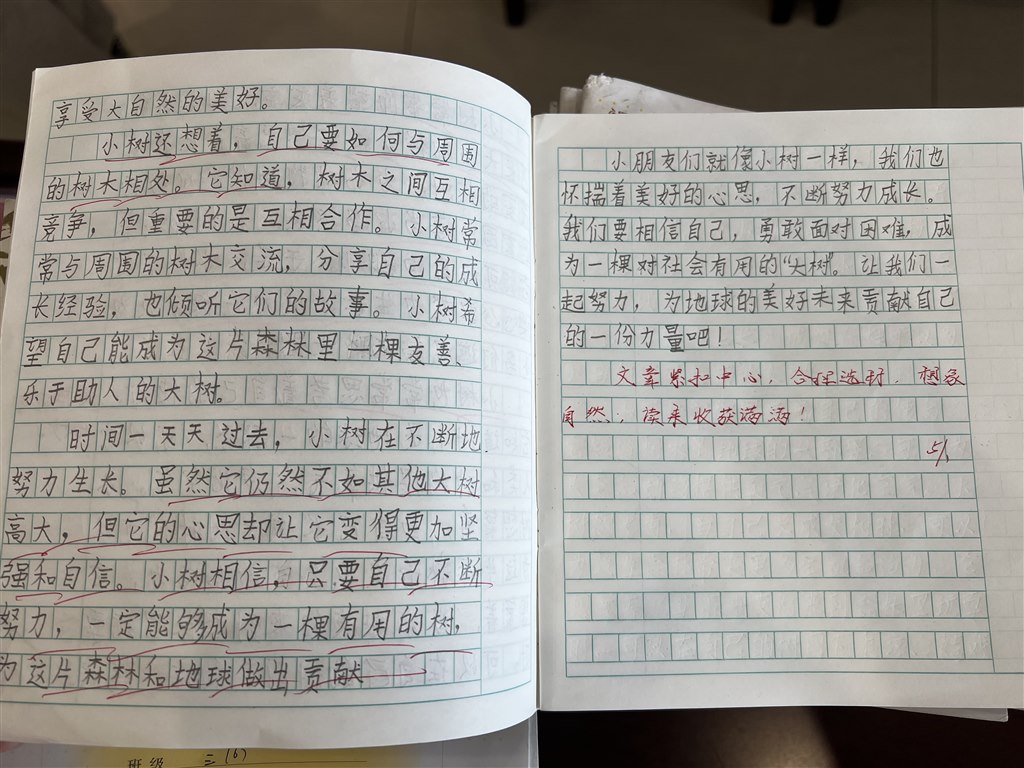 享受大自然的美好。
小树还想着，自己要如何与周围
的树木相处。它知道，树木之间互相
竞争，但重要的是互相合作。小树常
常与周围的树木交流，分享自己的成
长经验，也倾听它们的故事。小树希
望自己能成为这片森林里一棵友善、
乐于助人的大树。
时间一天天过去，小树在不断地
努力生长。虽然它仍然不如其他大树
高大，但它的心思却让它变得更加坚
强和自信。小树相信，只要自己不断
努力，一定能够成为一棵有用的树，
为这片森林和地球做出贡献
班级 三(6)
小朋友们就像小树一样，我们也
怀揣着美好的心思，不断努力成长。
我们要相信自己，勇敢面对困难，成
为一棵对社会有用的“大树”。让我们一
起努力，为地球的美好未来贡献自己
的一份力量吧！
文章紧扣中心，合理选材，想象
自然，读来收获满满！